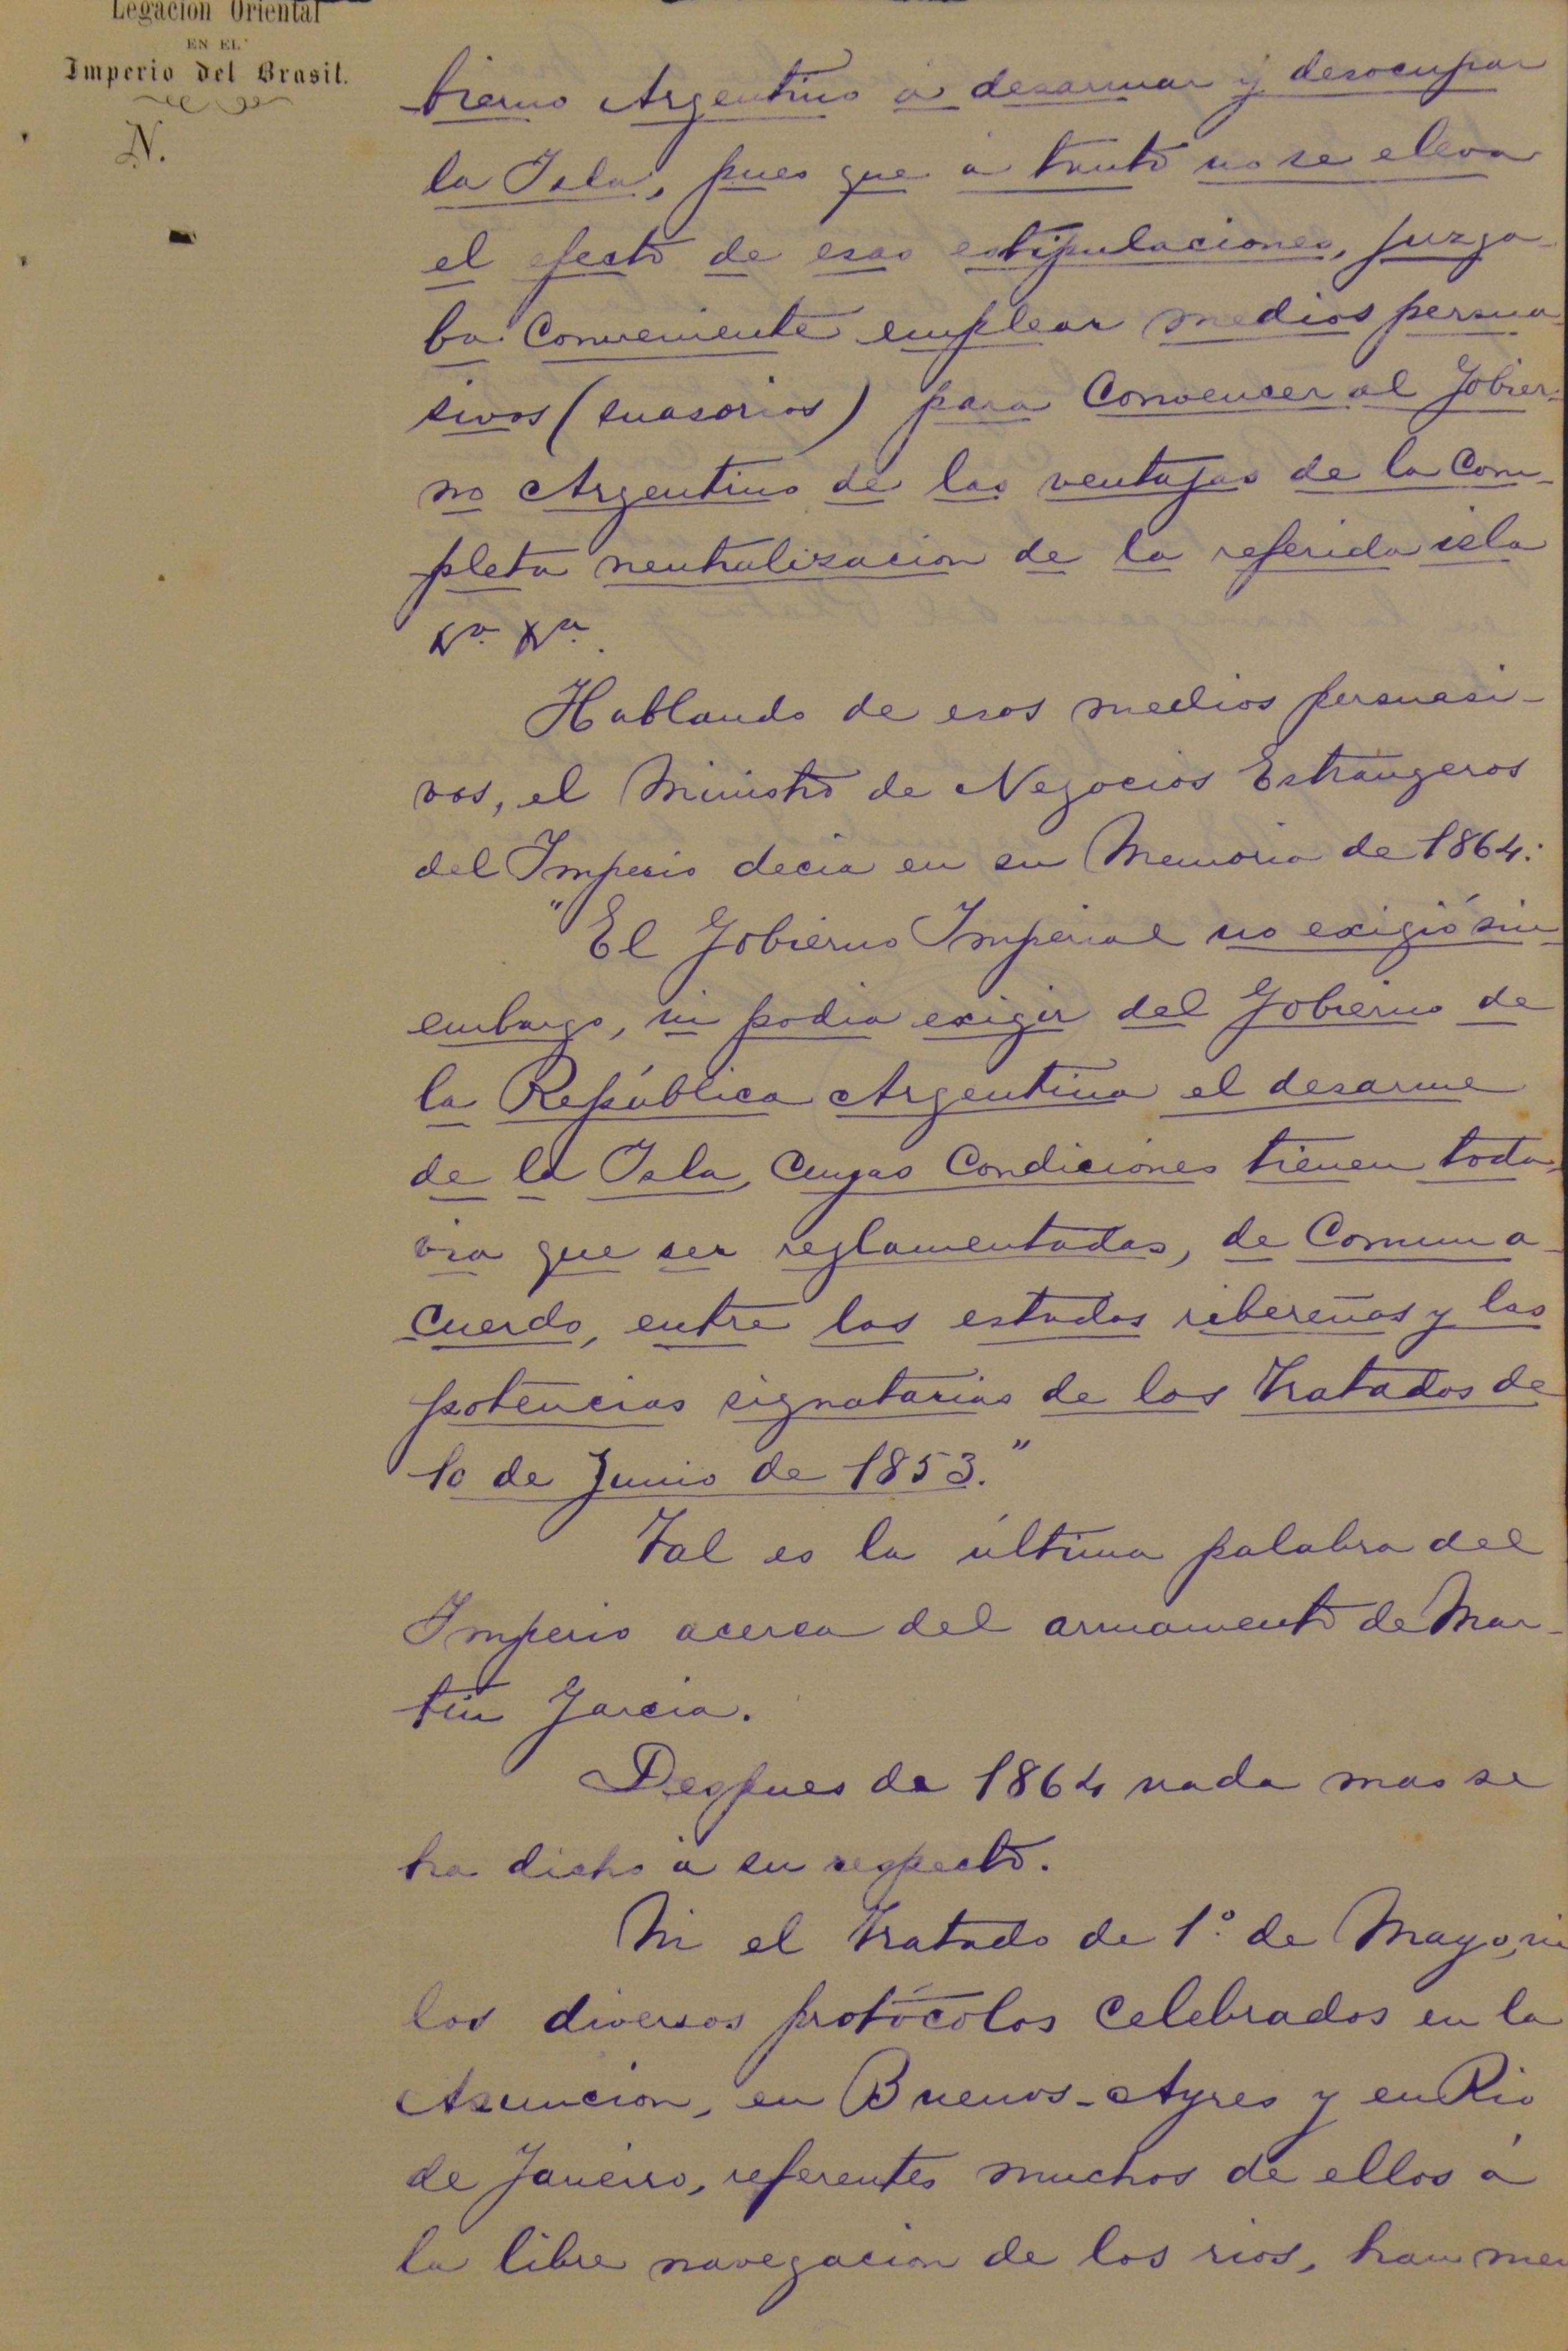 Legación Oriental
EN EL
Imperio del Brasil.
N.
bierno Argentino á desarmar y desocupar
la Isla, pues que á tanto no se eleva
el efecto de esas estipulaciones, juzga-
ba conveniente emplear medios persua-
sivos (suasorios) para convencer al Gobier-
no Argentino de las ventajas de la com-
pleta neutralizacion de la referida isla
&a &a.
Hablando de esos medios persuasi-
vos, el Ministro de Negocios Estrangeros
del Imperio decia en su Memoria de 1864:
"El Gobierno Imperial no exigió sin
embargo, ni podia exigir del Gobierno de
la República Argentina el desarme
de la Isla, cuyas condiciones tienen toda-
via que ser reglamentadas, de comun a-
cuerdo, entre los estados ribereños y las
potencias signatarias de los tratados de
10 de Junio de 1853."
Tal es la última palabra del
Imperio acerca del armamento de Mar-
tin Garcia.
Despues de 1864 nada mas se
ha dicho á su respecto.
Ni el tratado de 1º de Mayo, ni
los diversos protócolos celebrados en la
Asuncion, en Buenos-Ayres y en Rio
de Janeiro, referentes muchos de ellos á
la libre navegacion de los rios, han men